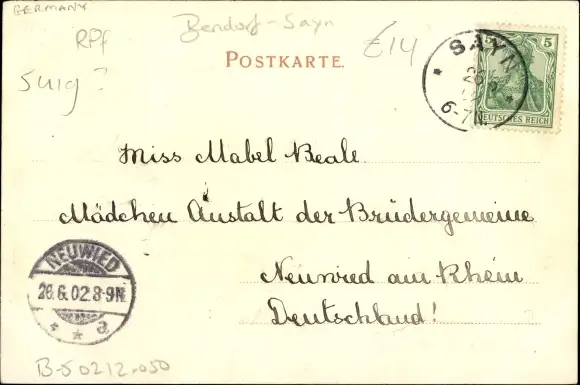 GERMANY
RPf
Bendorf-Sayn
£14
5 
DEUTSCHES REICH
SAYN
26
6-7N.
POSTKARTE.
Miss Mabel Beale
Mädchen Anstalt der Brüdergemeine
Neuwied am Rhein
Deutschland!
NEUWIED
26.6.02.8-9N
* * a
B-50212-050